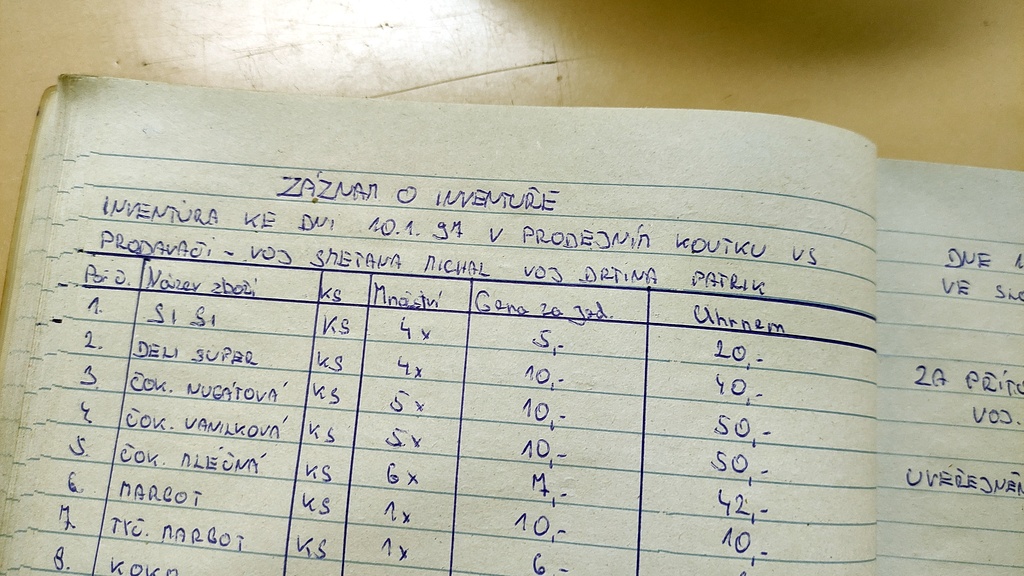 ZÁZNAM O INVENTUŘE
INVENTÚRA KE DNI 10.1.97 V PRODEJNÍM KOUTKU VS
PRODAVAČI - VOJ SMETANA MICHAL VOJ DRTINA PATRIK
Poř. č. Název zboží KS Množství Cena za jed. Úhrnem
1. SI SI KS 4x 5,- 20,-
2. DELI SUPER KS 4x 10,- 40,-
3. ČOK. NUGÁTOVÁ KS 5x 10,- 50,-
4. ČOK. VANILKOVÁ KS 5x 10,- 50,-
5. ČOK. MLÉČNÁ KS 6x 7,- 42,-
6. MARGOT KS 1x 10,- 10,-
7. TYČ. MARGOT KS 1x 6,-
8. KOKO
DNE
VE
ZA PŘÍTO
VOJ.
UVEŘEJNĚN